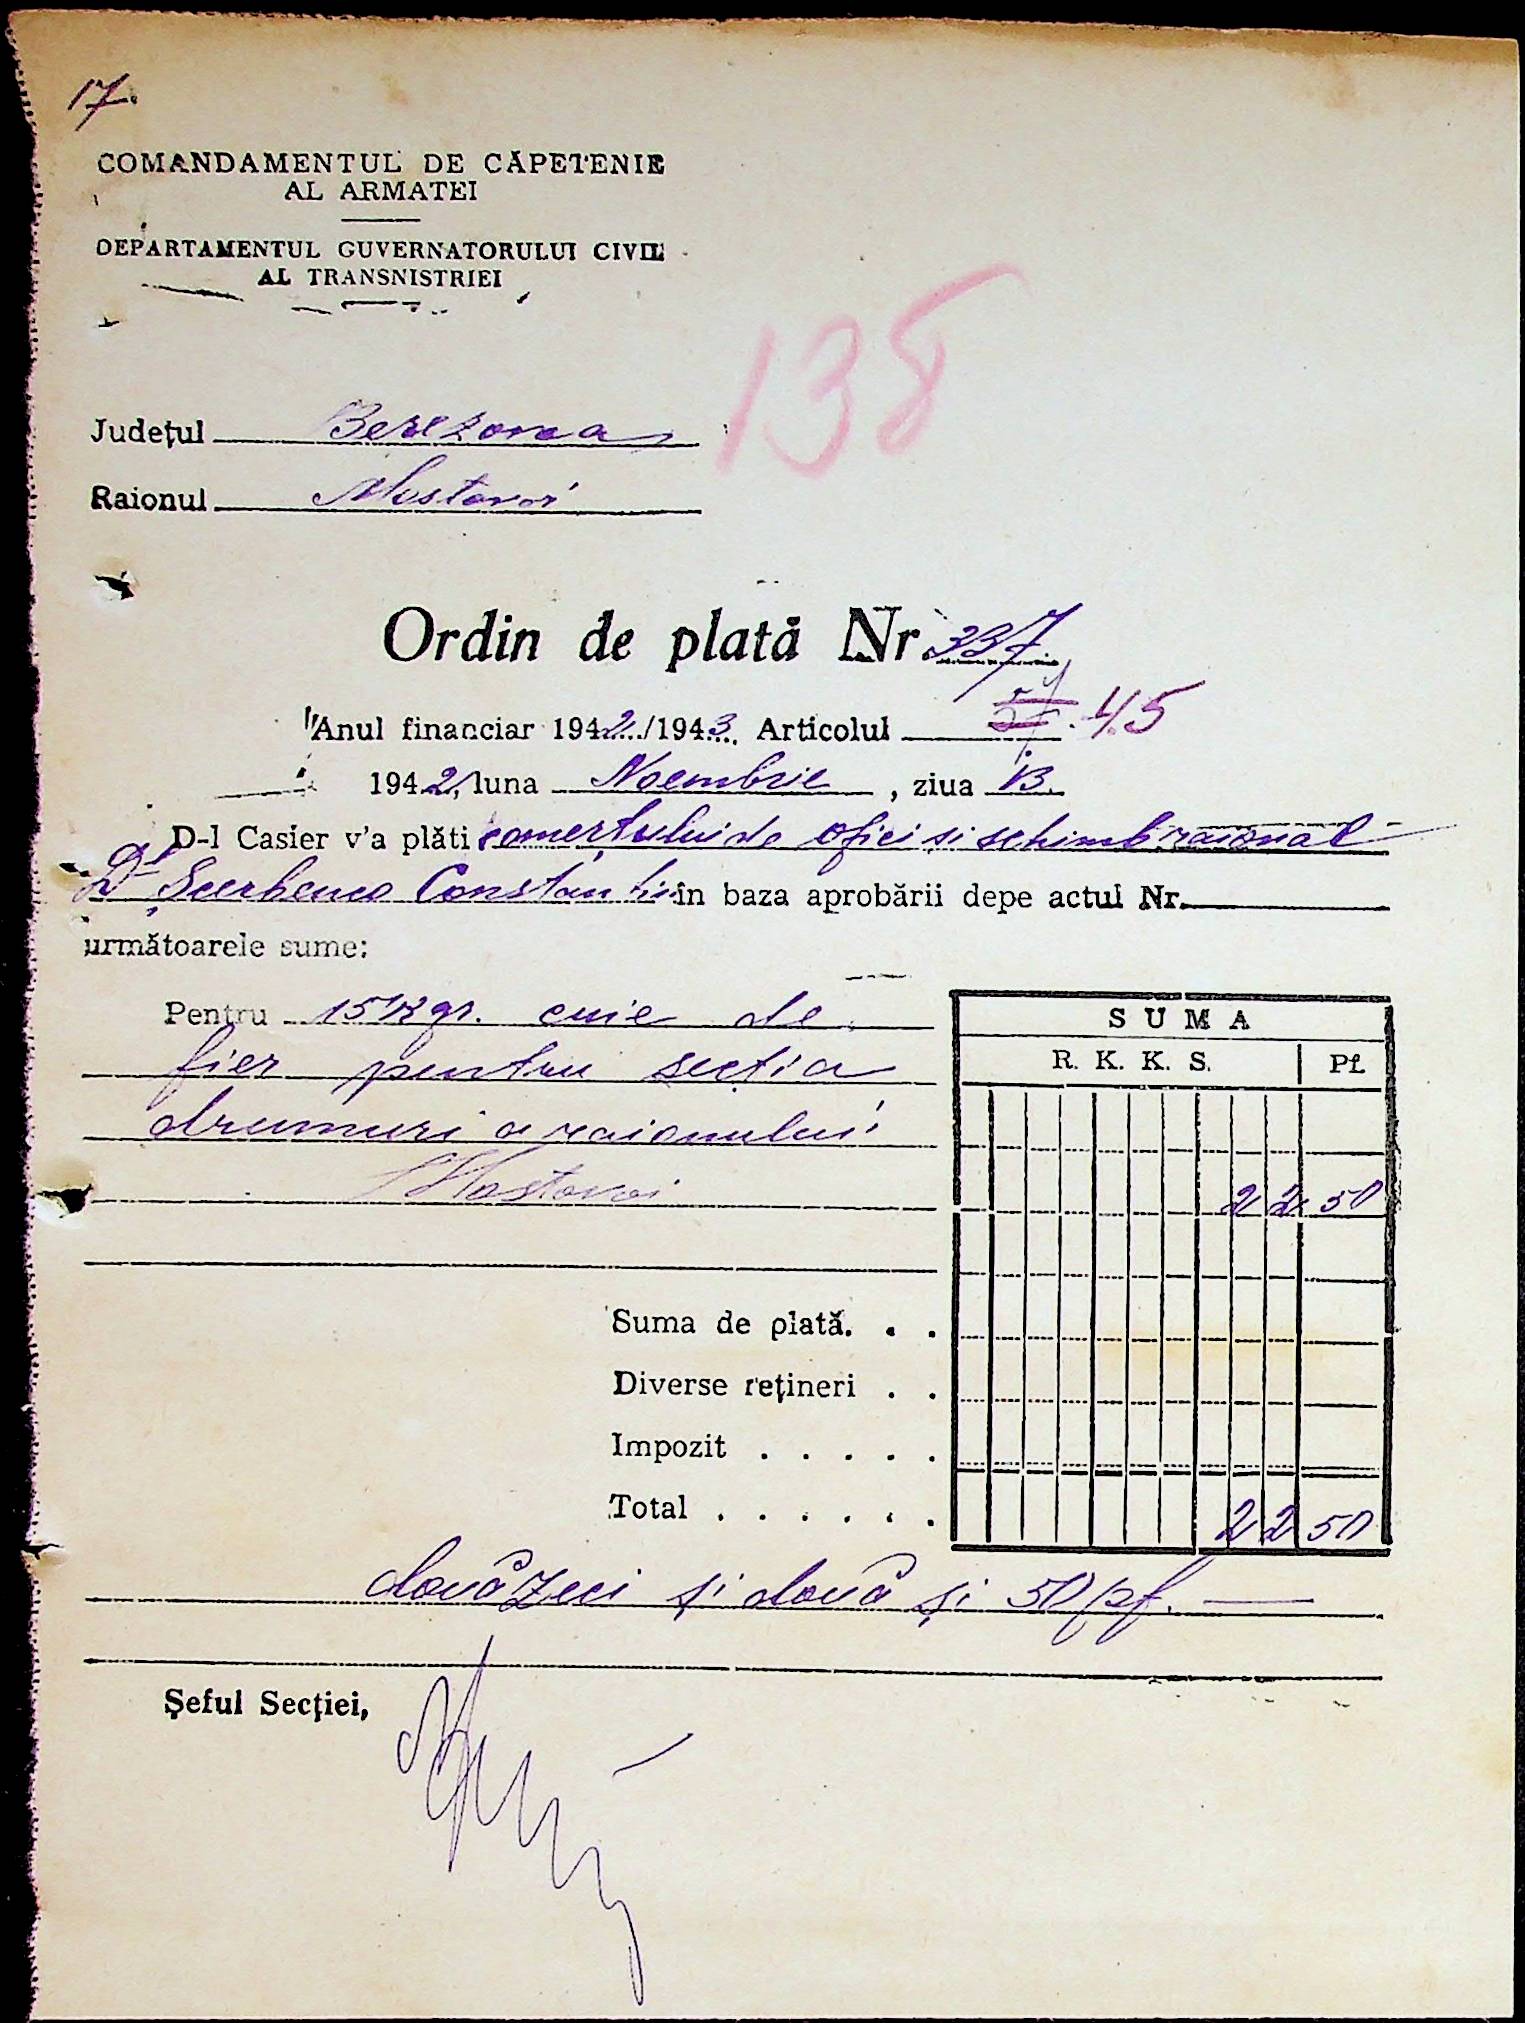 17.
COMANDAMENTUL DE CĂPETENIE
AL ARMATEI
DEPARTAMENTUL GUVERNATORULUI CIVIL
AL TRANSNISTRIEI
138
Județul Berezovca
Raionul Mostovoi
Ordin de plată Nr. 337
Anul financiar 1942/1943 Articolul 45
1942, luna Noembrie, ziua 13.
D-l Casier v'a plăti comerțului de ofici si schimb raional
Dl Scerbenco Constantin în baza aprobării depe actul Nr.
următoarele sume:
Pentru 15 Kgr. cuie de
fier pentru sectia
drumuri a raionului
Mostovoi
SUMA
R. K. K. S. Pf.
22 50
Suma de plată. . .
Diverse rețineri . .
Impozit . . . . .
Total . . . . . . 22 50
douăzeci și două și 50 pf. —
Șeful Secției,